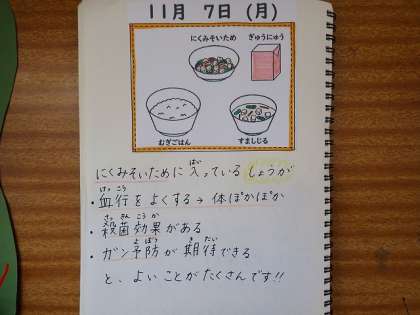 11月 7日 (月)
にくみそいため ぎゅうにゅう
むぎごはん すましじる
にくみそいために入っているしょうが
・血行をよくする→体ぽかぽか
・殺菌効果がある
・ガン予防が期待できる
と、よいことがたくさんです!!